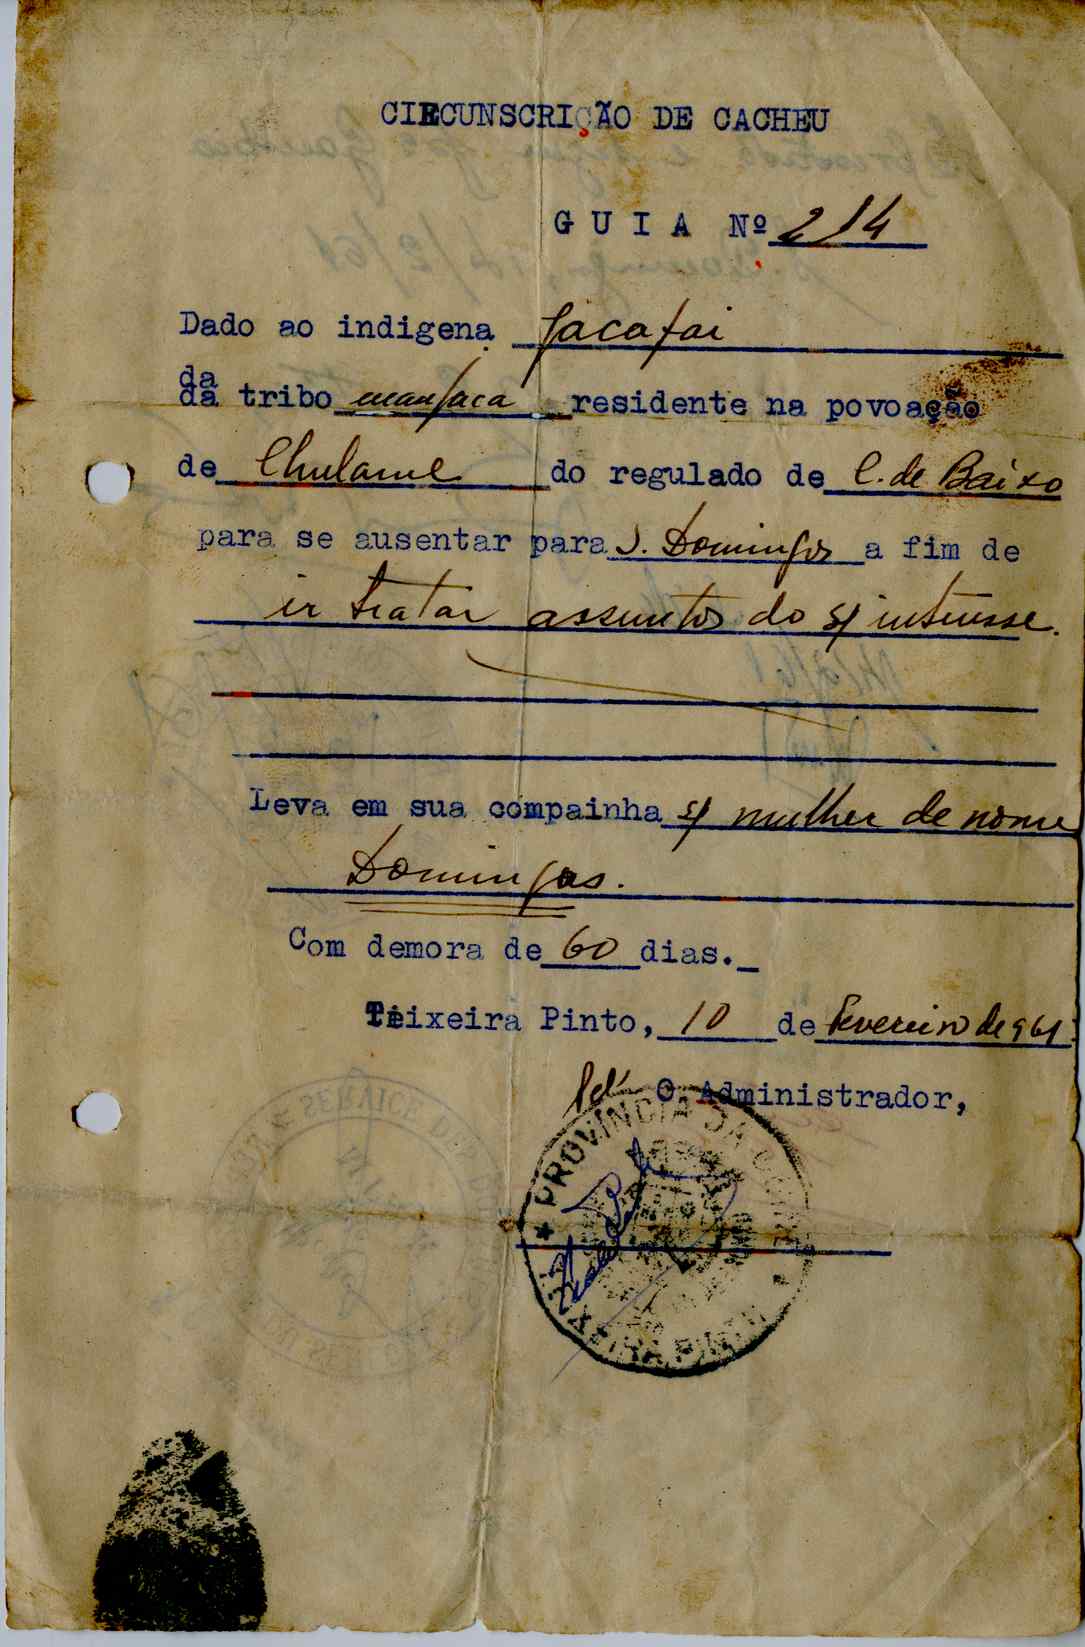 CIRCUNSCRIÇÃO DE CACHEU
GUIA Nº 214
Dado ao indigena Jacafai
da
da tribo manjaca residente na povoação
de Chulame do regulado de C. de Baixo
para se ausentar para S. Domingos a fim de
ir tratar assuntos do s/ interesse.
Leva em sua compainha s/ mulher de nome
Domingas.
Com demora de 60 dias._
Teixeira Pinto, 10 de Fevereiro de 961
Pel' O Administrador,
PROVÍNCIA DA
TEIXEIRA PINTO